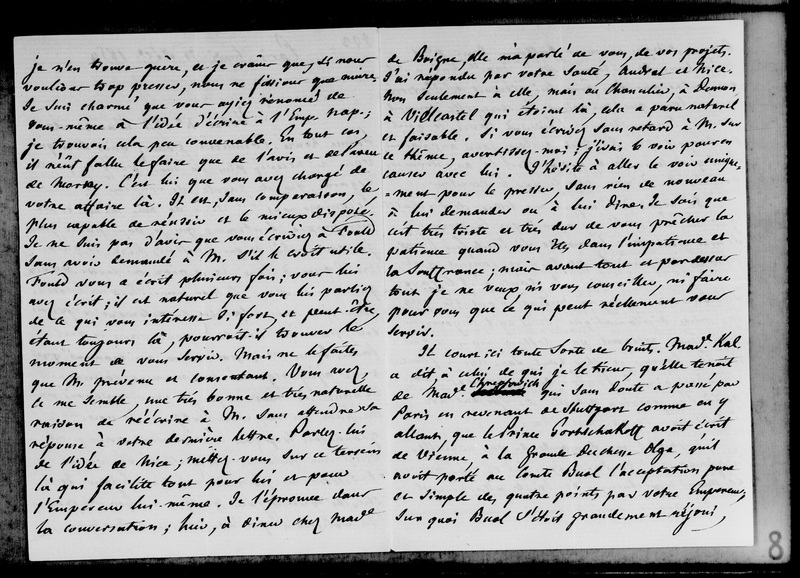 je n'en trouve guère, et je crains que, si nous
voulions trop presser, nous ne fissions que nuire.
Je suis charmé que vous ayiez renoncé de
vous-même à l'idée d'écrire à l'Emp. Nap.;
je trouvois cela peu convenable. En tout cas,
il n'eût fallu le faire que de l'avis et de l'aveu
de Morny. C'est lui que vous avez chargé de
votre affaire là. Il est, sans comparaison, le
plus capable de réussir et le mieux disposé.
Je ne suis pas d'avis que vous écriviez à Fould
sans avoir demandé à M. s'il le croit utile.
Fould vous a écrit plusieurs fois; vous lui
avez écrit; il est naturel que vous lui parliez
de ce qui vous intéresse si fort, et peut-être
étant toujours là, pourroit-il trouver le
moment de vous servir. Mais ne le faites
que M. prévenu et consentant. Vous avez,
ce me semble, une très bonne et très naturelle
raison de réécrire à M. sans attendre sa
réponse à votre dernière lettre. Parlez-lui
de l'idée de Nice; mettez-vous sur ce terrain
là qui facilite tout pour lui et pour
l'Empereur lui-même. Je l'éprouve dans
la conversation; hier, à diner chez Made
de Boigne, elle m'a parlé de vous, de vos projets.
J'ai répondu par votre santé, Andral et Nice.
Non seulement à elle, mais au Chancelier, à Dumon
à Viel Castel qui étoient là, cela a paru naturel
et faisable. Si vous écriviez sans retard à M. sur
ce thême, avertissez-moi; j'irais le voir pour en
causer avec lui. J'hésite à aller le voir unique-
=ment pour le presser, sans rien de nouveau
à lui demander ou à lui dire. Je sais que
c'est très triste et très dur de vous prêcher la
patience quand vous êtes dans l'impatience et
la souffrance; mais avant tout et par dessus
tout je ne veux ni vous conseiller, ni faire
pour vous que ce qui peut réellement vous
servir.
Il court ici toute sorte de bruits. Made. Kal.
a dit à celui de qui je le tiens, qu'elle tenoit
de Made Chreptowich qui sans doute a passé par
Paris en revenant de Stuttgart comme en y
allant, que le Prince Gortschakoff avoit écrit
de Vienne à la Grande Duchesse Olga, qu'il
avoit porté au Comte Buol l'acceptation pure
et simple des quatre points par votre Empereur,
sur quoi Buol s'étoit grandement réjoui,
8